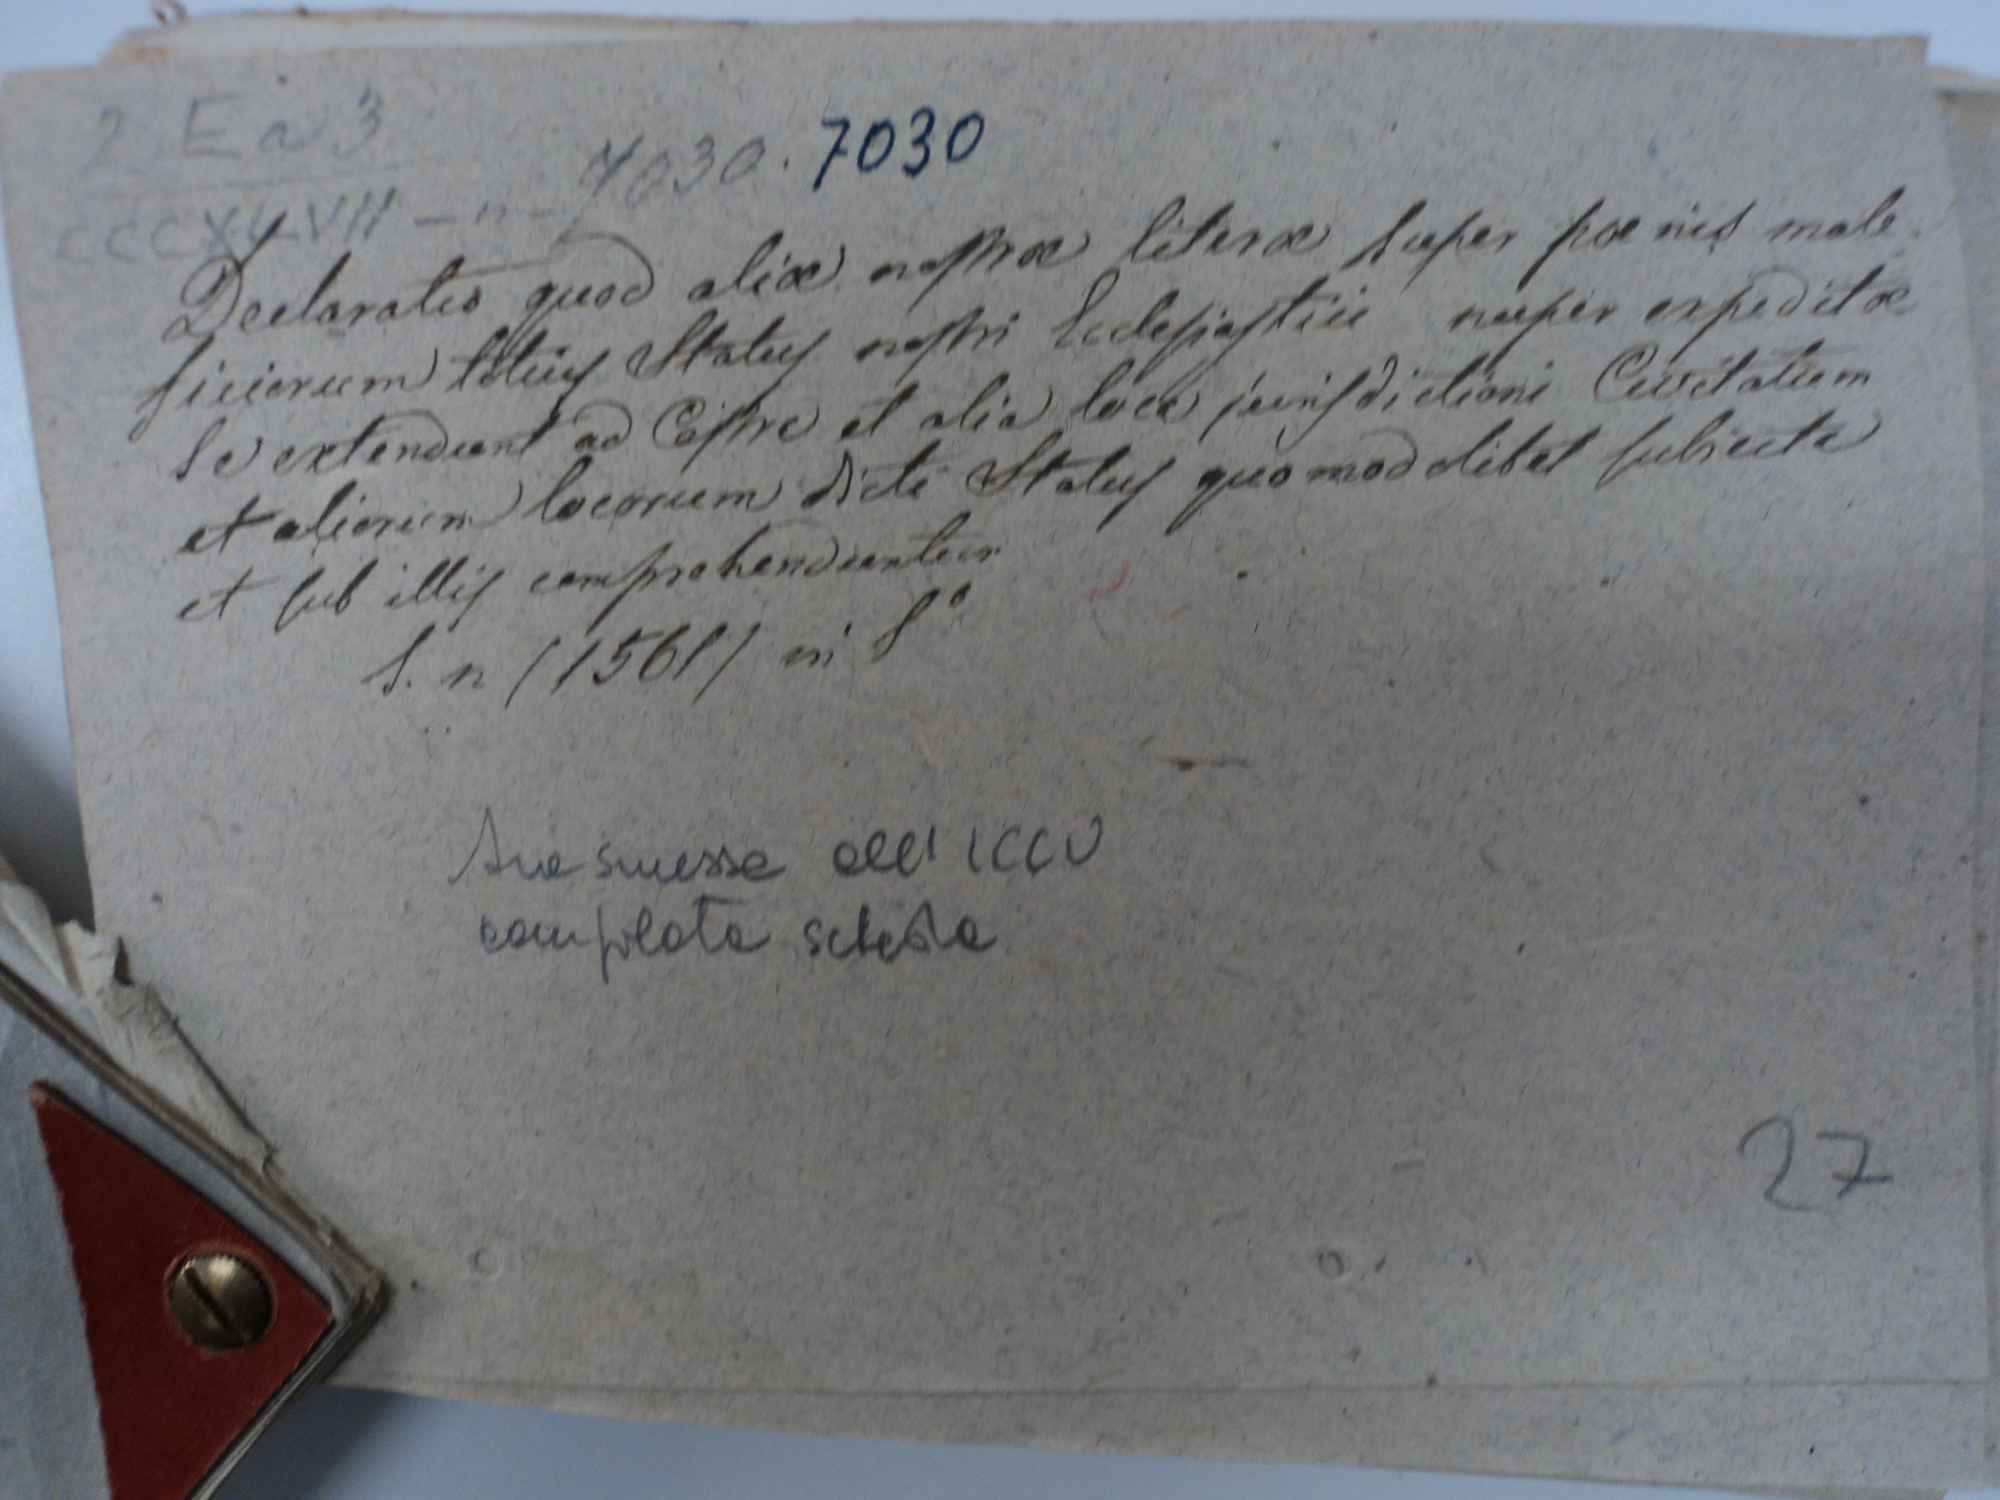 2 E a 3
CCCXLVII - n - 7030. 7030
Declaratio quod aliæ nostræ literæ super pœnis male-
ficiorum totius Status nostri Ecclesiastici nuper expeditæ
se extendunt ad Castra et alia loca jurisdictioni Civitatum
et aliorum locorum dicti Status quomodolibet subiecta
et sub illis comprehenduntur
S. n (1561) in 8°
Trasmessa all' ICCU
compilata scheda
27